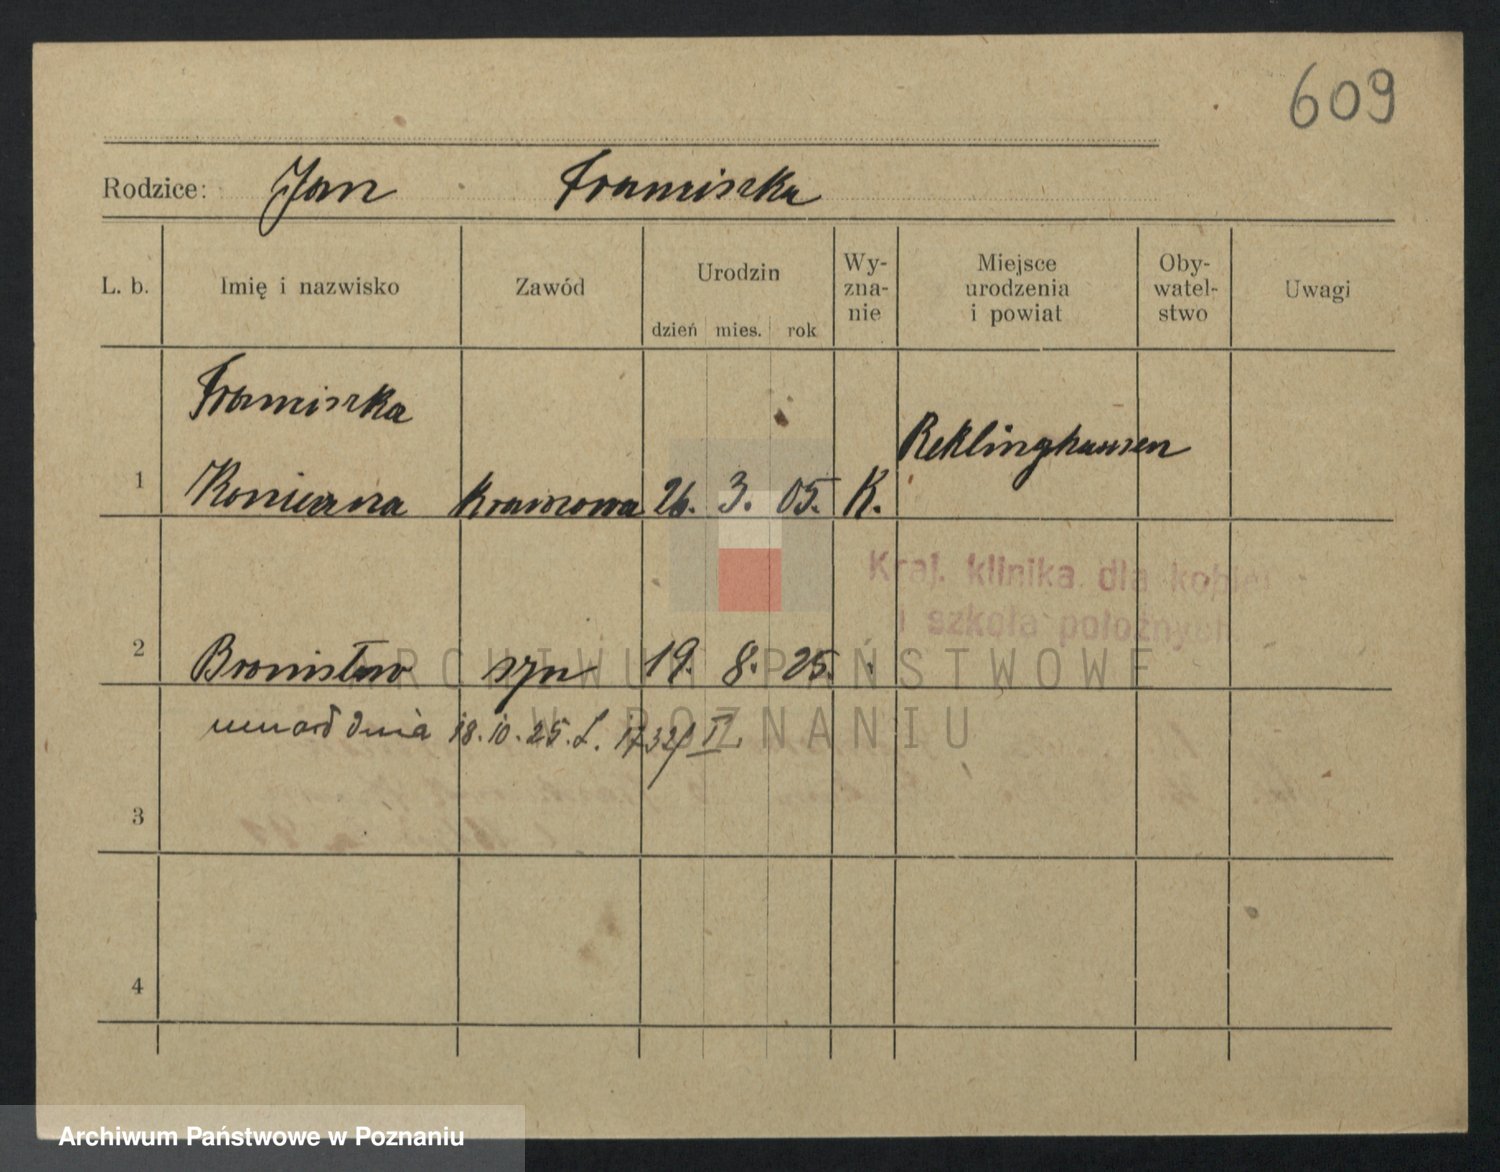 609
Rodzice: Jan Franciszka
L. b. Imię i nazwisko Zawód Urodzin dzień mies. rok Wy-zna-nie Miejsce urodzenia i powiat Oby-watel-stwo Uwagi
Franciszka
Reklinghausen
1 Konieczna Krawcowa 26. 3. 05. K.
Kraj. klinika dla kobiet
i szkoła położnych
2 Bronisław syn 19. 8. 25.
ARCHIWUM PAŃSTWOWE
W POZNANIU
umarł dnia 18.10.25. L. 1732/II
3
4
Archiwum Państwowe w Poznaniu